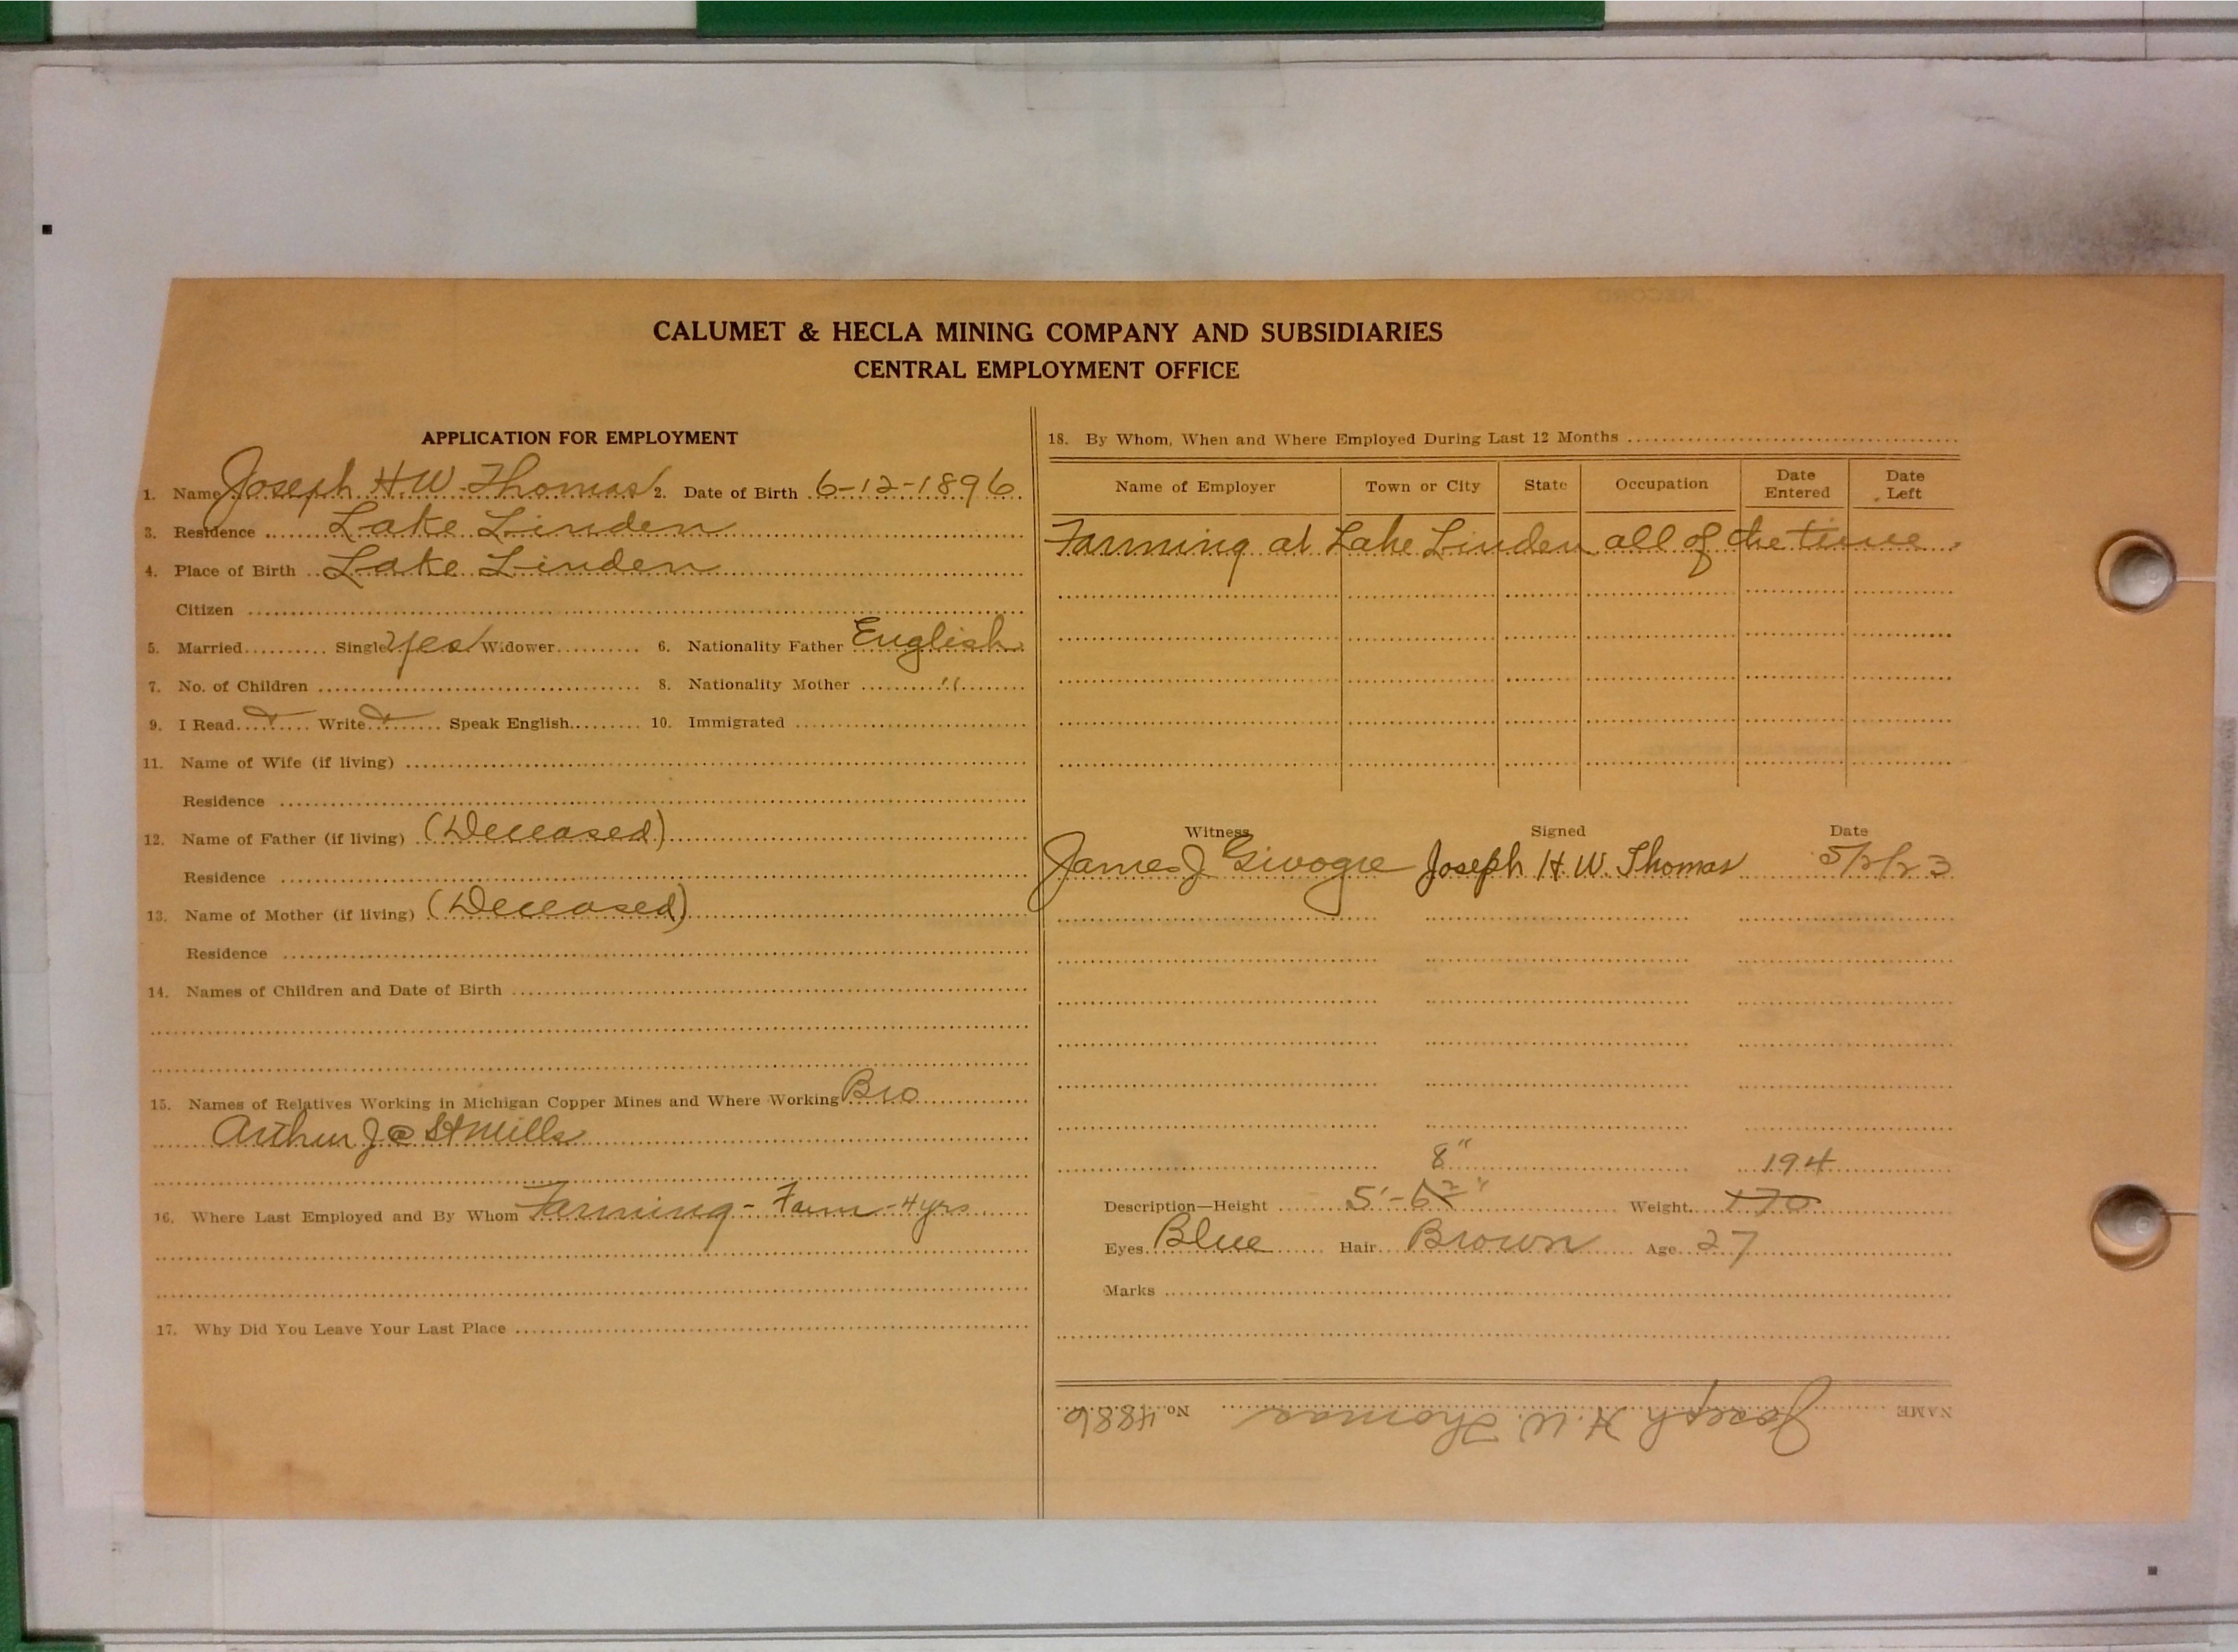 CALUMET & HECLA MINING COMPANY AND SUBSIDIARIES
CENTRAL EMPLOYMENT OFFICE
APPLICATION FOR EMPLOYMENT
1. Name Joseph H.W. Thomas 2. Date of Birth 6-12-1896
3. Residence Lake Linden
4. Place of Birth Lake Linden
Citizen
5. Married Single Yes Widower 6. Nationality Father English
7. No. of Children 8. Nationality Mother "
9. I Read Write Speak English 10. Immigrated
11. Name of Wife (if living)
Residence
12. Name of Father (if living) (Deceased)
Residence
13. Name of Mother (if living) (Deceased)
Residence
14. Names of Children and Date of Birth
15. Names of Relatives Working in Michigan Copper Mines and Where Working Bro
Arthur J @ St Mills
16. Where Last Employed and By Whom Farming - Farm - 4 yrs
17. Why Did You Leave Your Last Place
18. By Whom, When and Where Employed During Last 12 Months
Name of Employer Town or City State Occupation Date Entered Date Left
Farming at Lake Linden all of the time.
Witness Signed Date
James J Joseph H.W. Thomas 5/2/23
8" 194
Description—Height 5'-6 2" Weight 170
Eyes Blue Hair Brown Age 27
Marks
NAME Joseph H. W. Thomas No. 4886